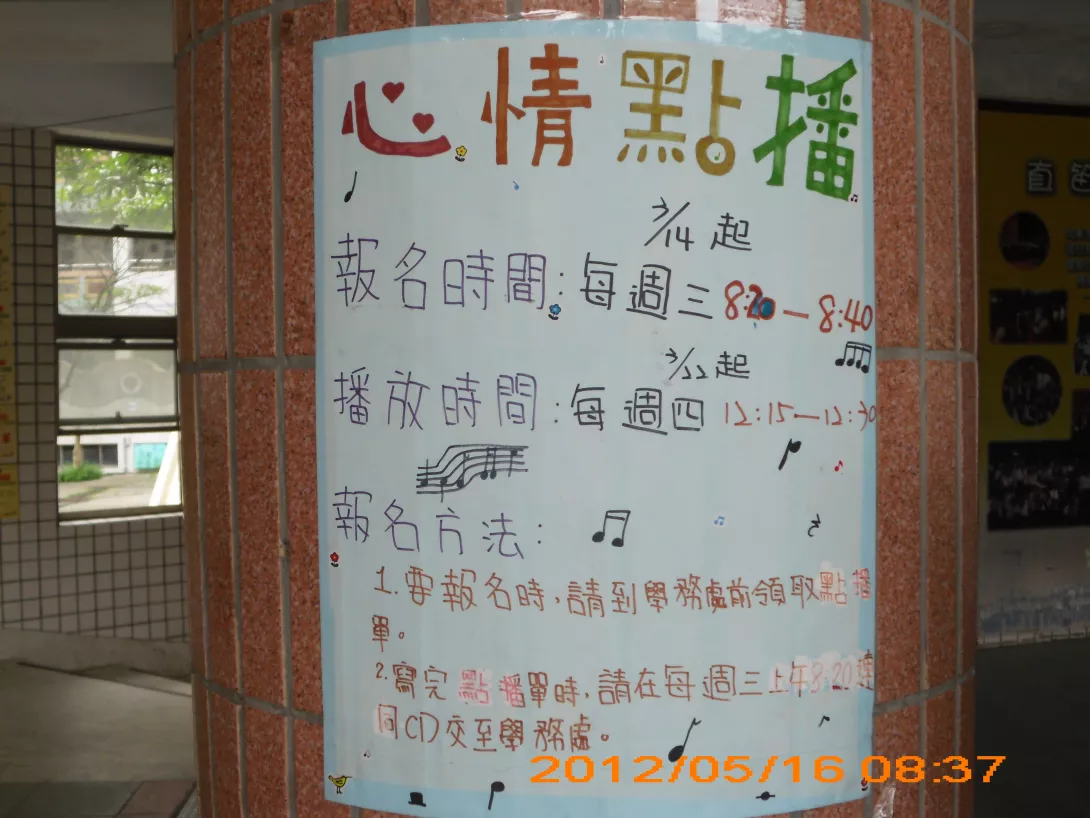 心情點播
3/14起
報名時間:每週三8:20—8:40
3/22起
播放時間:每週四 12:15—12:30
報名方法:
1.要報名時,請到學務處前領取點播
單。
2.寫完點播單時,請在每週三上午8:20連
同CD交至學務處。
2012/05/16 08:37
直笛